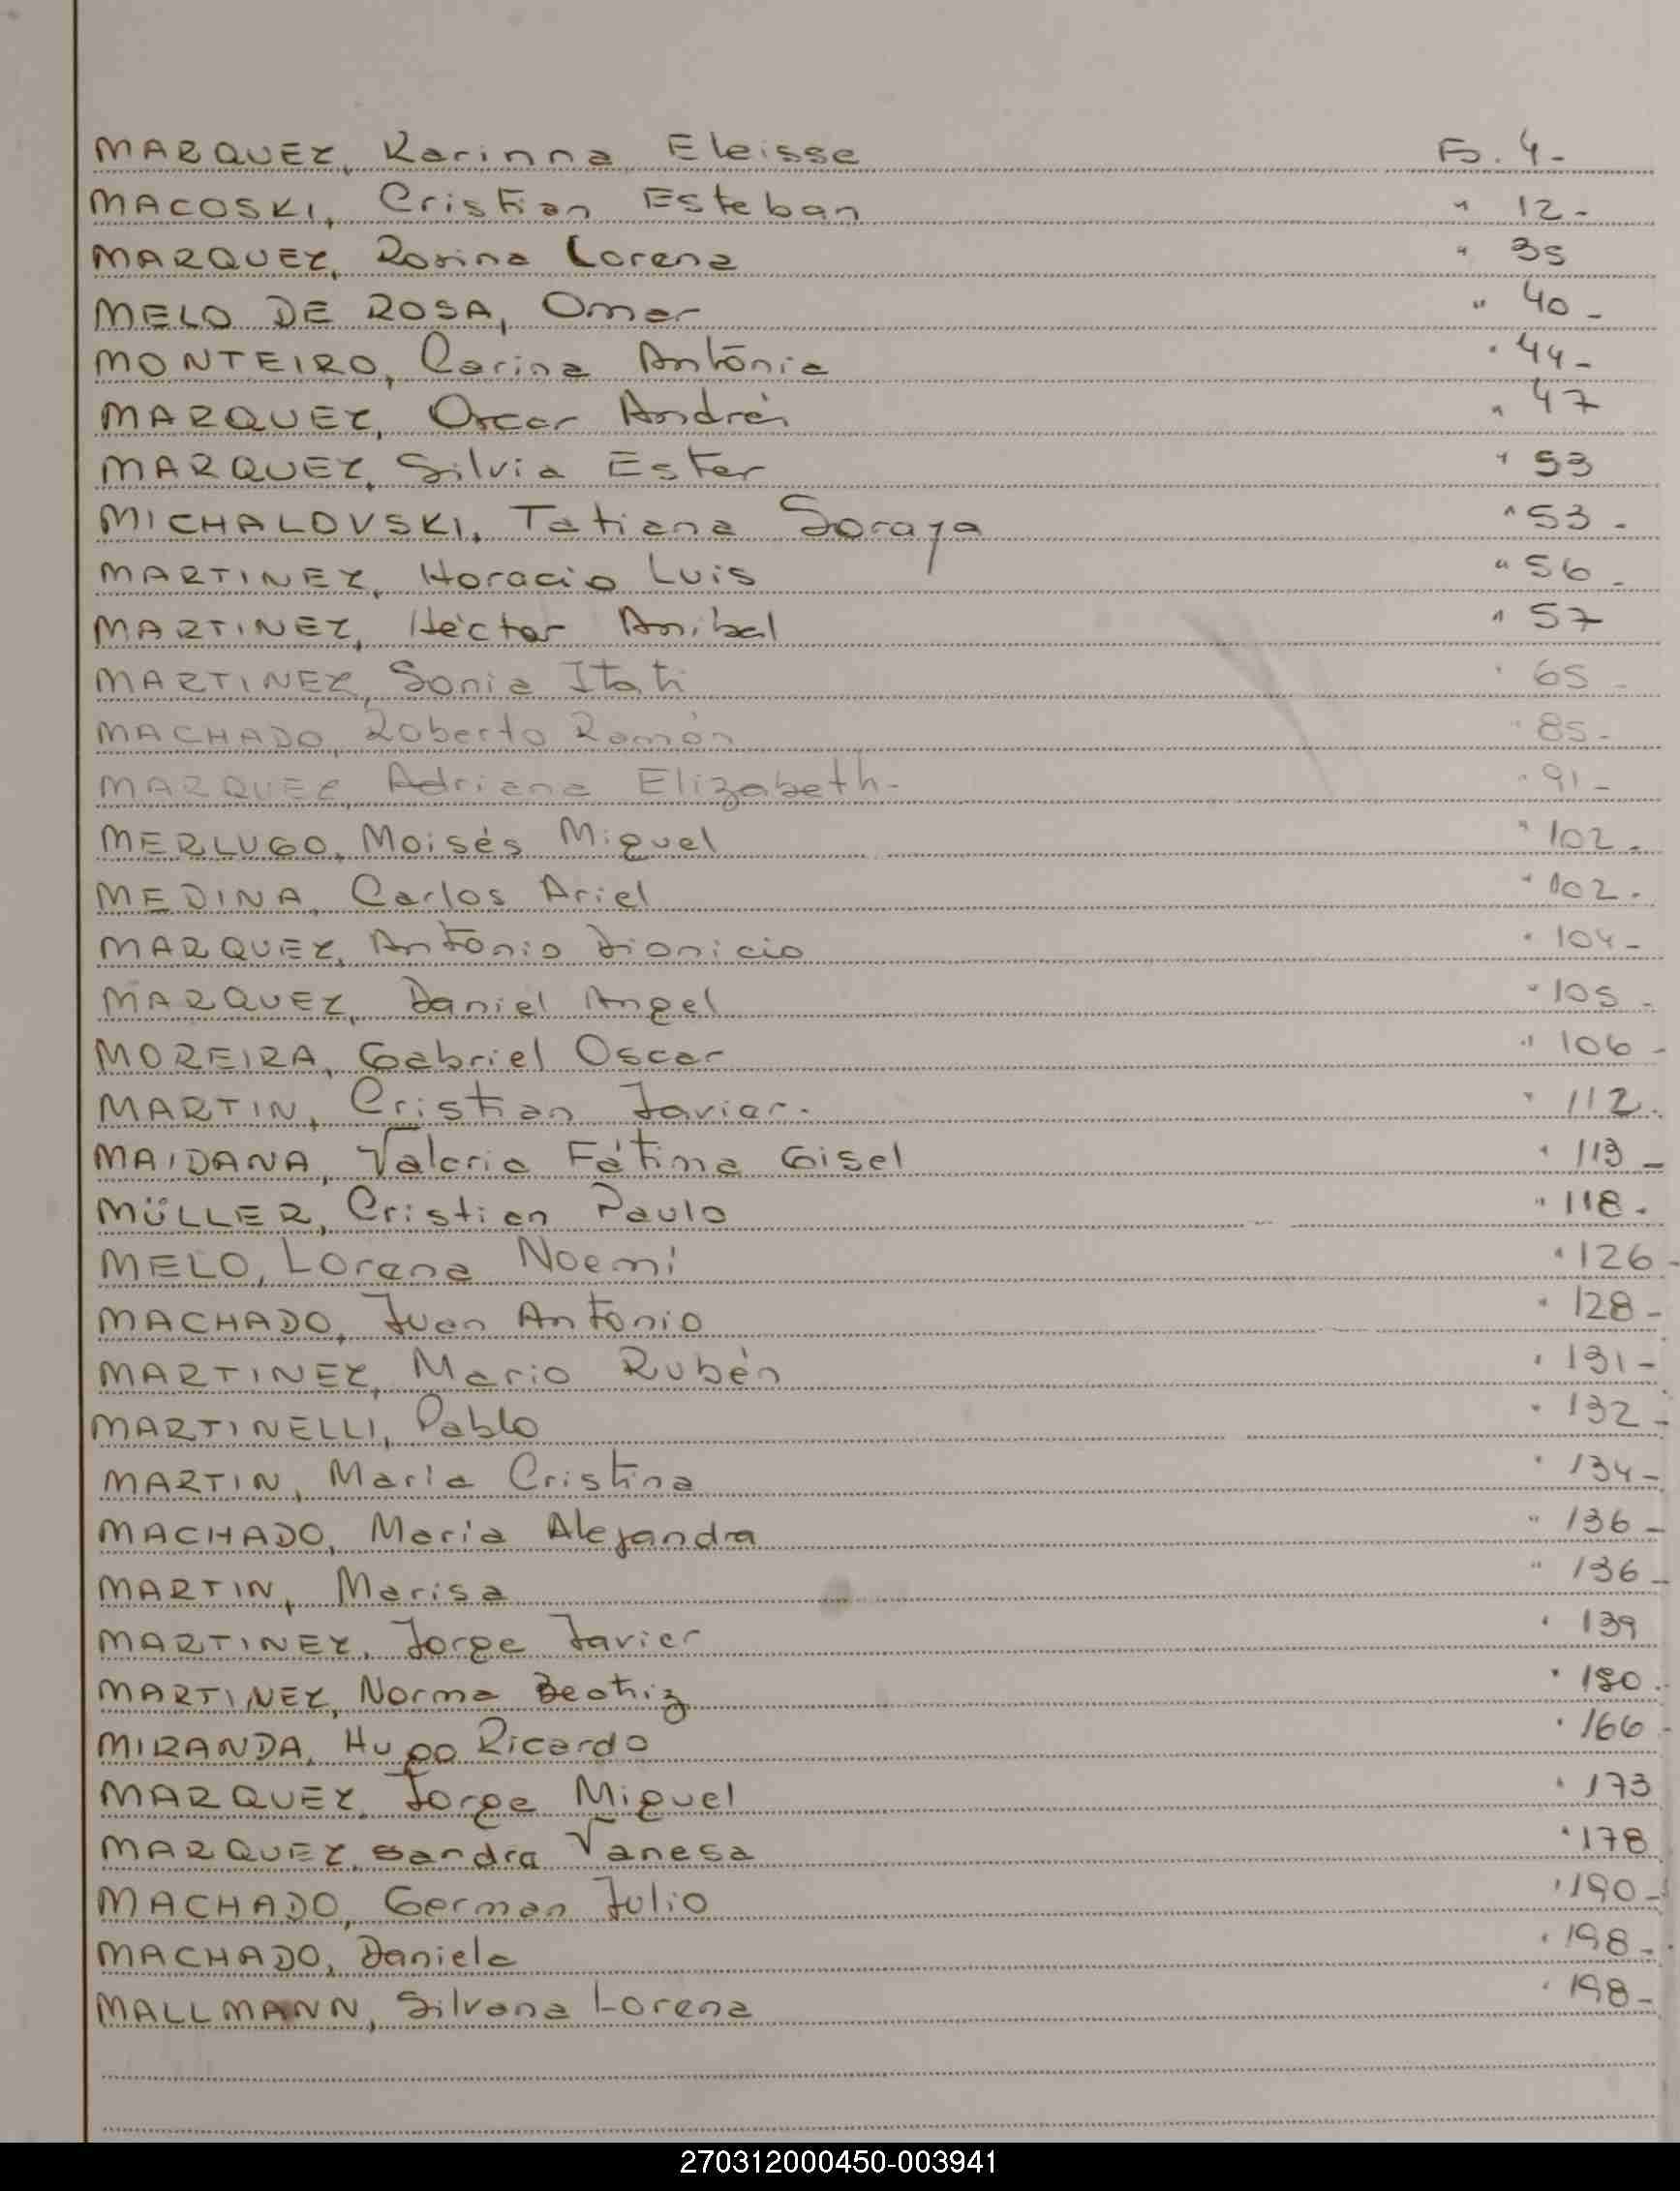 MARQUEZ, Karinna Eleisse Fs. 4-
MACOSKI, Cristian Esteban " 12-
MARQUEZ, Rosina Lorena " 35
MELO DE ROSA, Omar " 40-
MONTEIRO, Carina Antônia " 44-
MARQUEZ, Oscar Andrés " 47
MARQUEZ, Silvia Ester " 53
MICHALOVSKI, Tatiana Soraya " 53-
MARTINEZ, Horacio Luis " 56-
MARTINEZ, Héctor Anibal " 57
MARTINEZ, Sonia Itati " 65-
MACHADO, Roberto Ramón " 85-
MARQUEZ, Adriana Elizabeth- " 91-
MERLUGO, Moisés Miguel " 102-
MEDINA, Carlos Ariel " 102-
MARQUEZ, Antonio Dionicio " 104-
MARQUEZ, Daniel Angel " 105-
MOREIRA, Gabriel Oscar " 106-
MARTIN, Cristian Javier. " 112.
MAIDANA, Valeria Fátima Gisel " 113-
MÜLLER, Cristian Paulo " 118-
MELO, Lorena Noemí " 126-
MACHADO, Juan Antonio " 128-
MARTINEZ, Mario Rubén " 131-
MARTINELLI, Pablo " 132-
MARTIN, María Cristina " 134-
MACHADO, María Alejandra " 136-
MARTIN, Marisa " 136-
MARTINEZ, Jorge Javier " 139
MARTINEZ, Norma Beatriz "
MIRANDA, Hugo Ricardo " 166-
MARQUEZ, Jorge Miguel " 173
MARQUEZ, Sandra Vanesa " 178
MACHADO, German Julio " 190-
MACHADO, Daniela " 198-
MALLMANN, Silvana Lorena " 198-
270312000450-003941